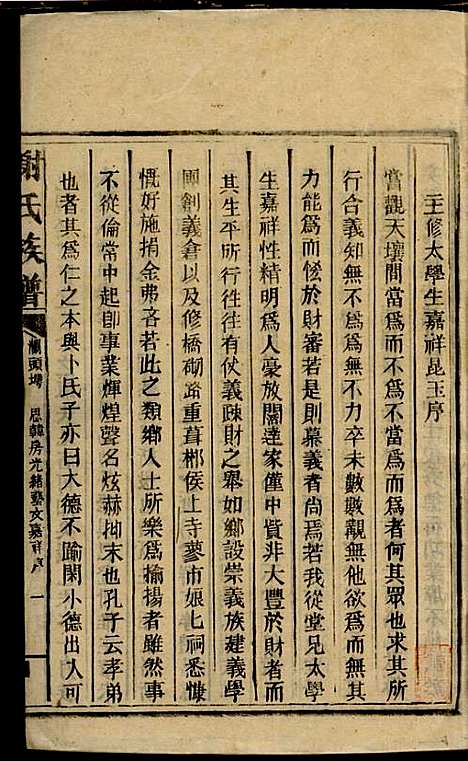 主修太學生嘉祥昆玉序
嘗觀天壤間當爲而不爲不當爲者何其眾也求其所
行合義知無不爲爲無不力卒未數數覯無他欲爲而無其
力能爲而慳於財審若是則慕義者尚焉若我從堂兄太學
生嘉祥性精明爲人豪放闊達家僅中貲非大豐於財者而
其生平所行徃徃有仗義疎財之舉如鄉設崇義族建義學
團創義倉以及修橋砌路重葺郴侯上寺蓼市娘娘祠悉慷
慨好施捐金弗吝若此之類鄉人士所樂爲揄揚者雖然事
不從倫常中起卽事業輝煌聲名炫赫抑末也孔子云孝弟
也者其爲仁之本與卜氏子亦曰大德不踰閑小德出入可
謝氏族譜 頭 思韓房光緒藝文嘉祥序 一